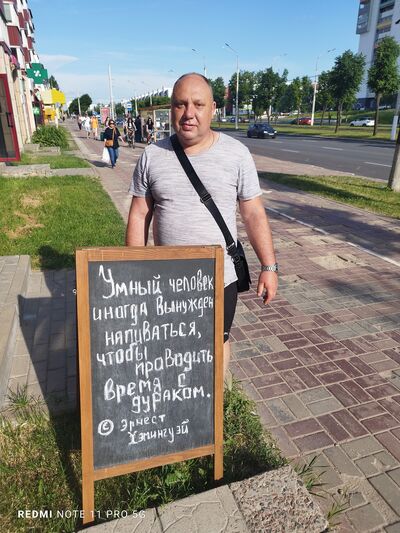 Умный человек
иногда вынужден
напиваться,
чтобы проводить
время с
дураком.
© Эрнест
Хэмингуэй
REDMI NOTE 11 PRO 5G